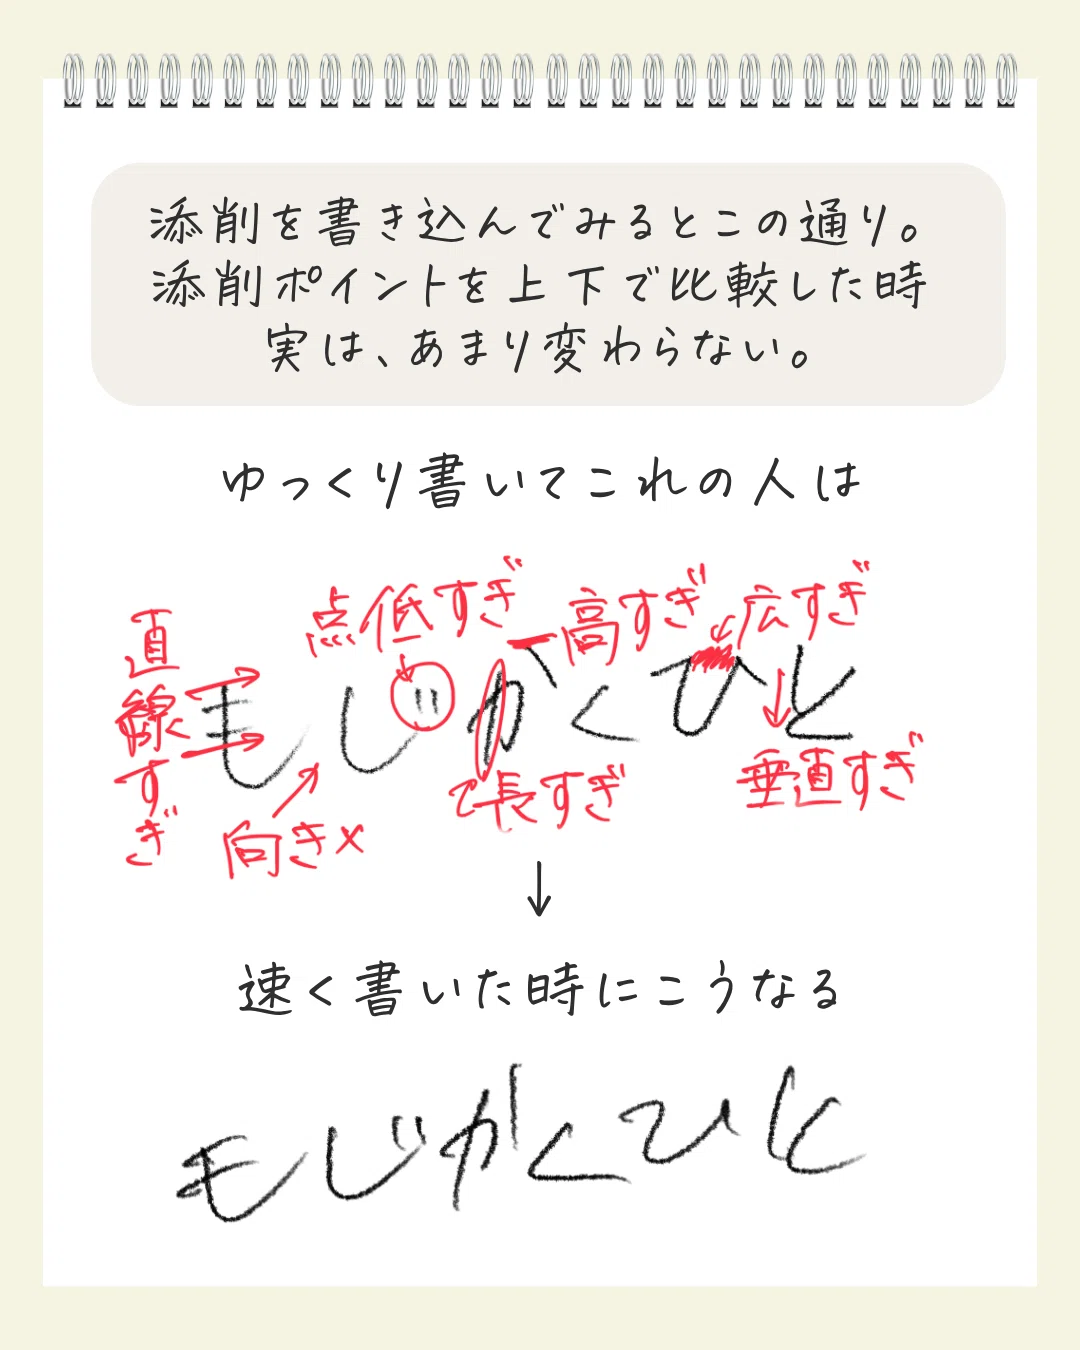 添削を書き込んでみるとこの通り。
添削ポイントを上下で比較した時
実は、あまり変わらない。
ゆっくり書いてこれの人は
直線すぎ
点低すぎ
高すぎ
広すぎ
もじかくひと
向き×
で長すぎ
垂直すぎ
↓
速く書いた時にこうなる
もじかくひと